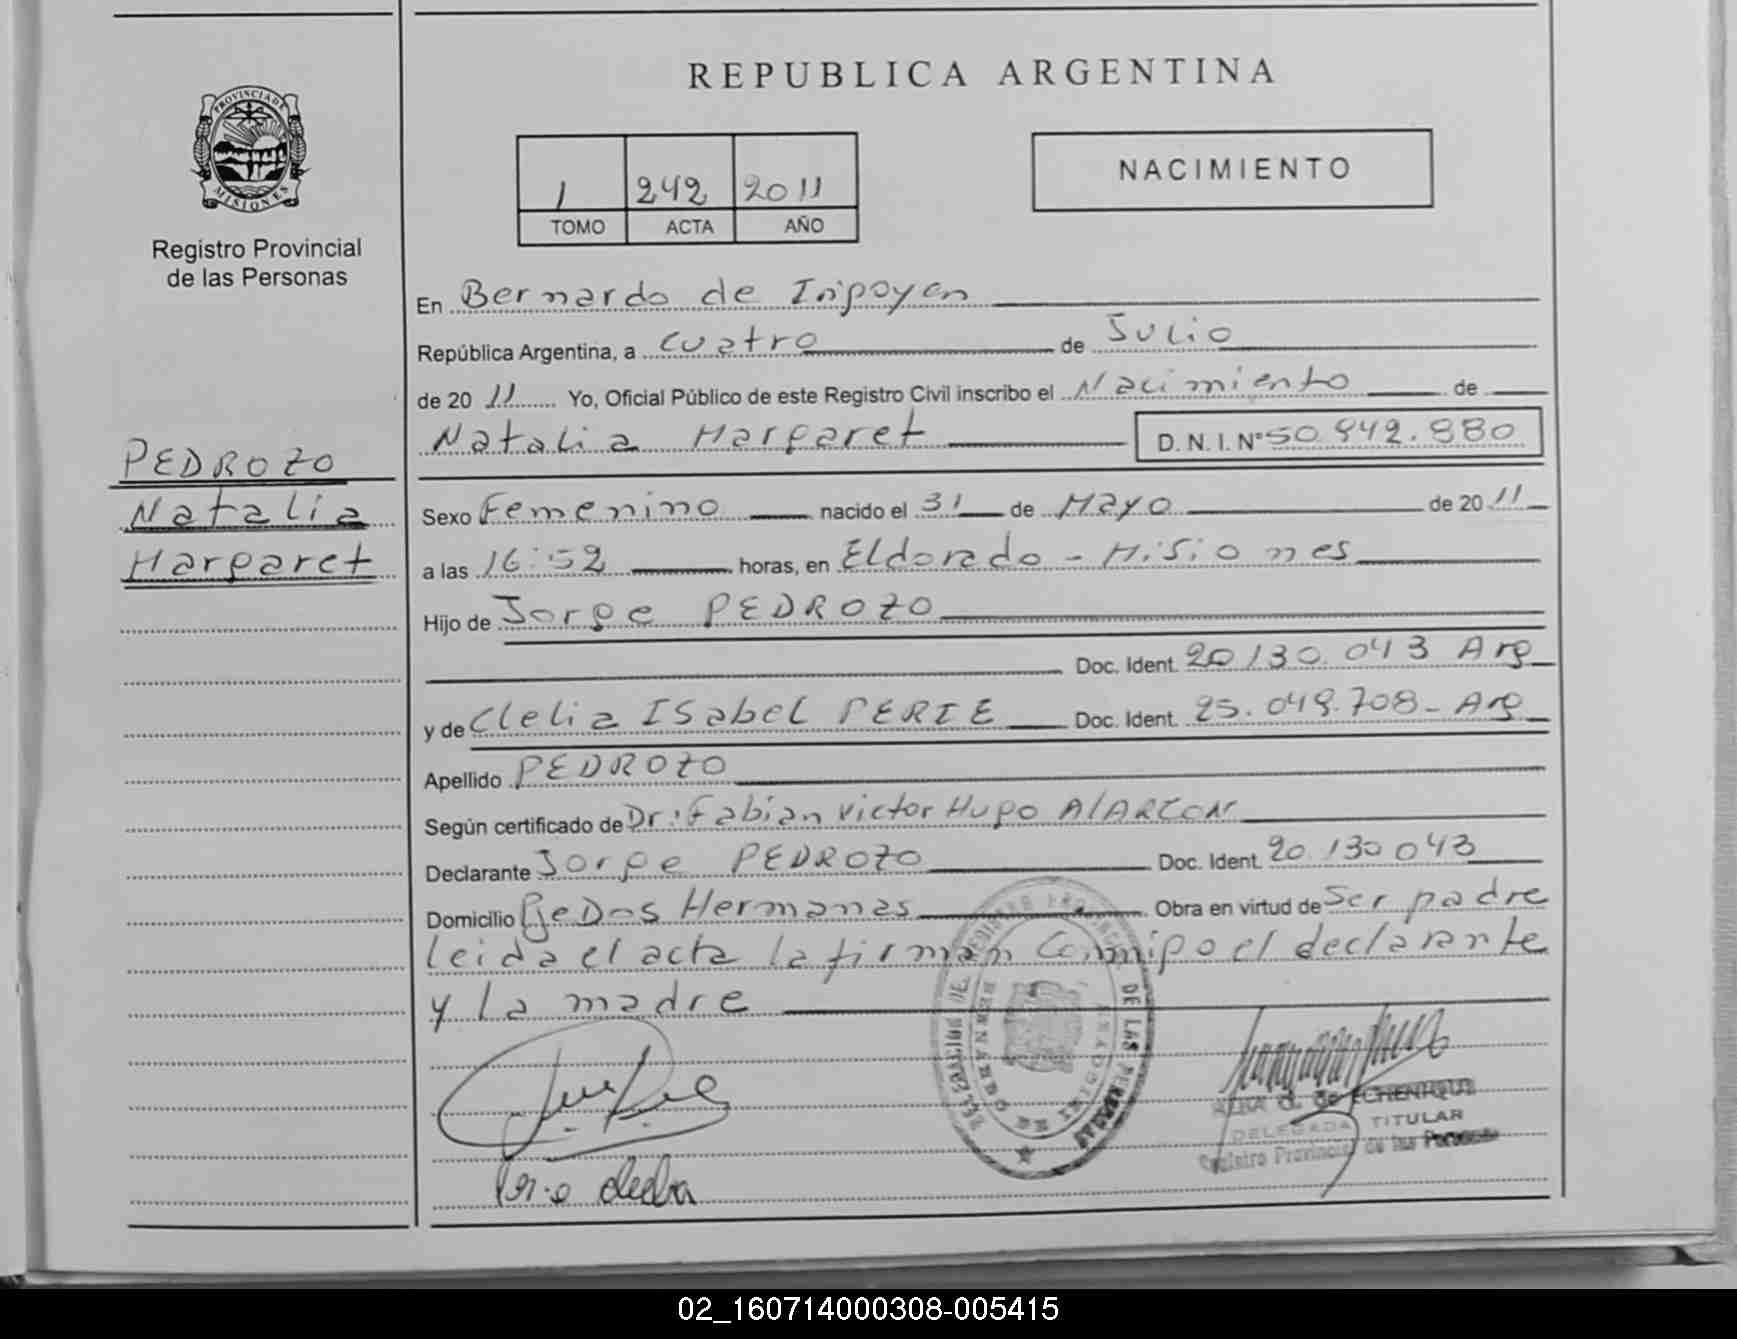 REPUBLICA ARGENTINA
PROVINCIA DE
MISIONES
Registro Provincial
de las Personas
1 242 2011
TOMO ACTA AÑO
NACIMIENTO
En Bernardo de Irigoyen
República Argentina, a cuatro de Julio
de 20 11 Yo, Oficial Público de este Registro Civil inscribo el Nacimiento de
Natalia Margaret D. N. I. Nº 50.942.880
PEDROZO
Natalia
Margaret
Sexo Femenino nacido el 31 de Mayo de 20 11
a las 16:52 horas, en Eldorado - Misiones
Hijo de Jorge PEDROZO
Doc. Ident. 20.130.043 Arg
y de Clelia ISabel PERIE Doc. Ident. 25.049.708- Arg
Apellido PEDROZO
Según certificado de Dr: Fabian Victor Hugo AlARCON
Declarante Jorge PEDROZO Doc. Ident. 20.130.043
Domicilio Pje Dos Hermanas Obra en virtud de Ser padre
leida el acta la firman Conmigo el declarante
y la madre
DE LAS PERSONAS
ECHENIQUE
DELEGADA TITULAR
Registro Provincial de las Personas
02_160714000308-005415